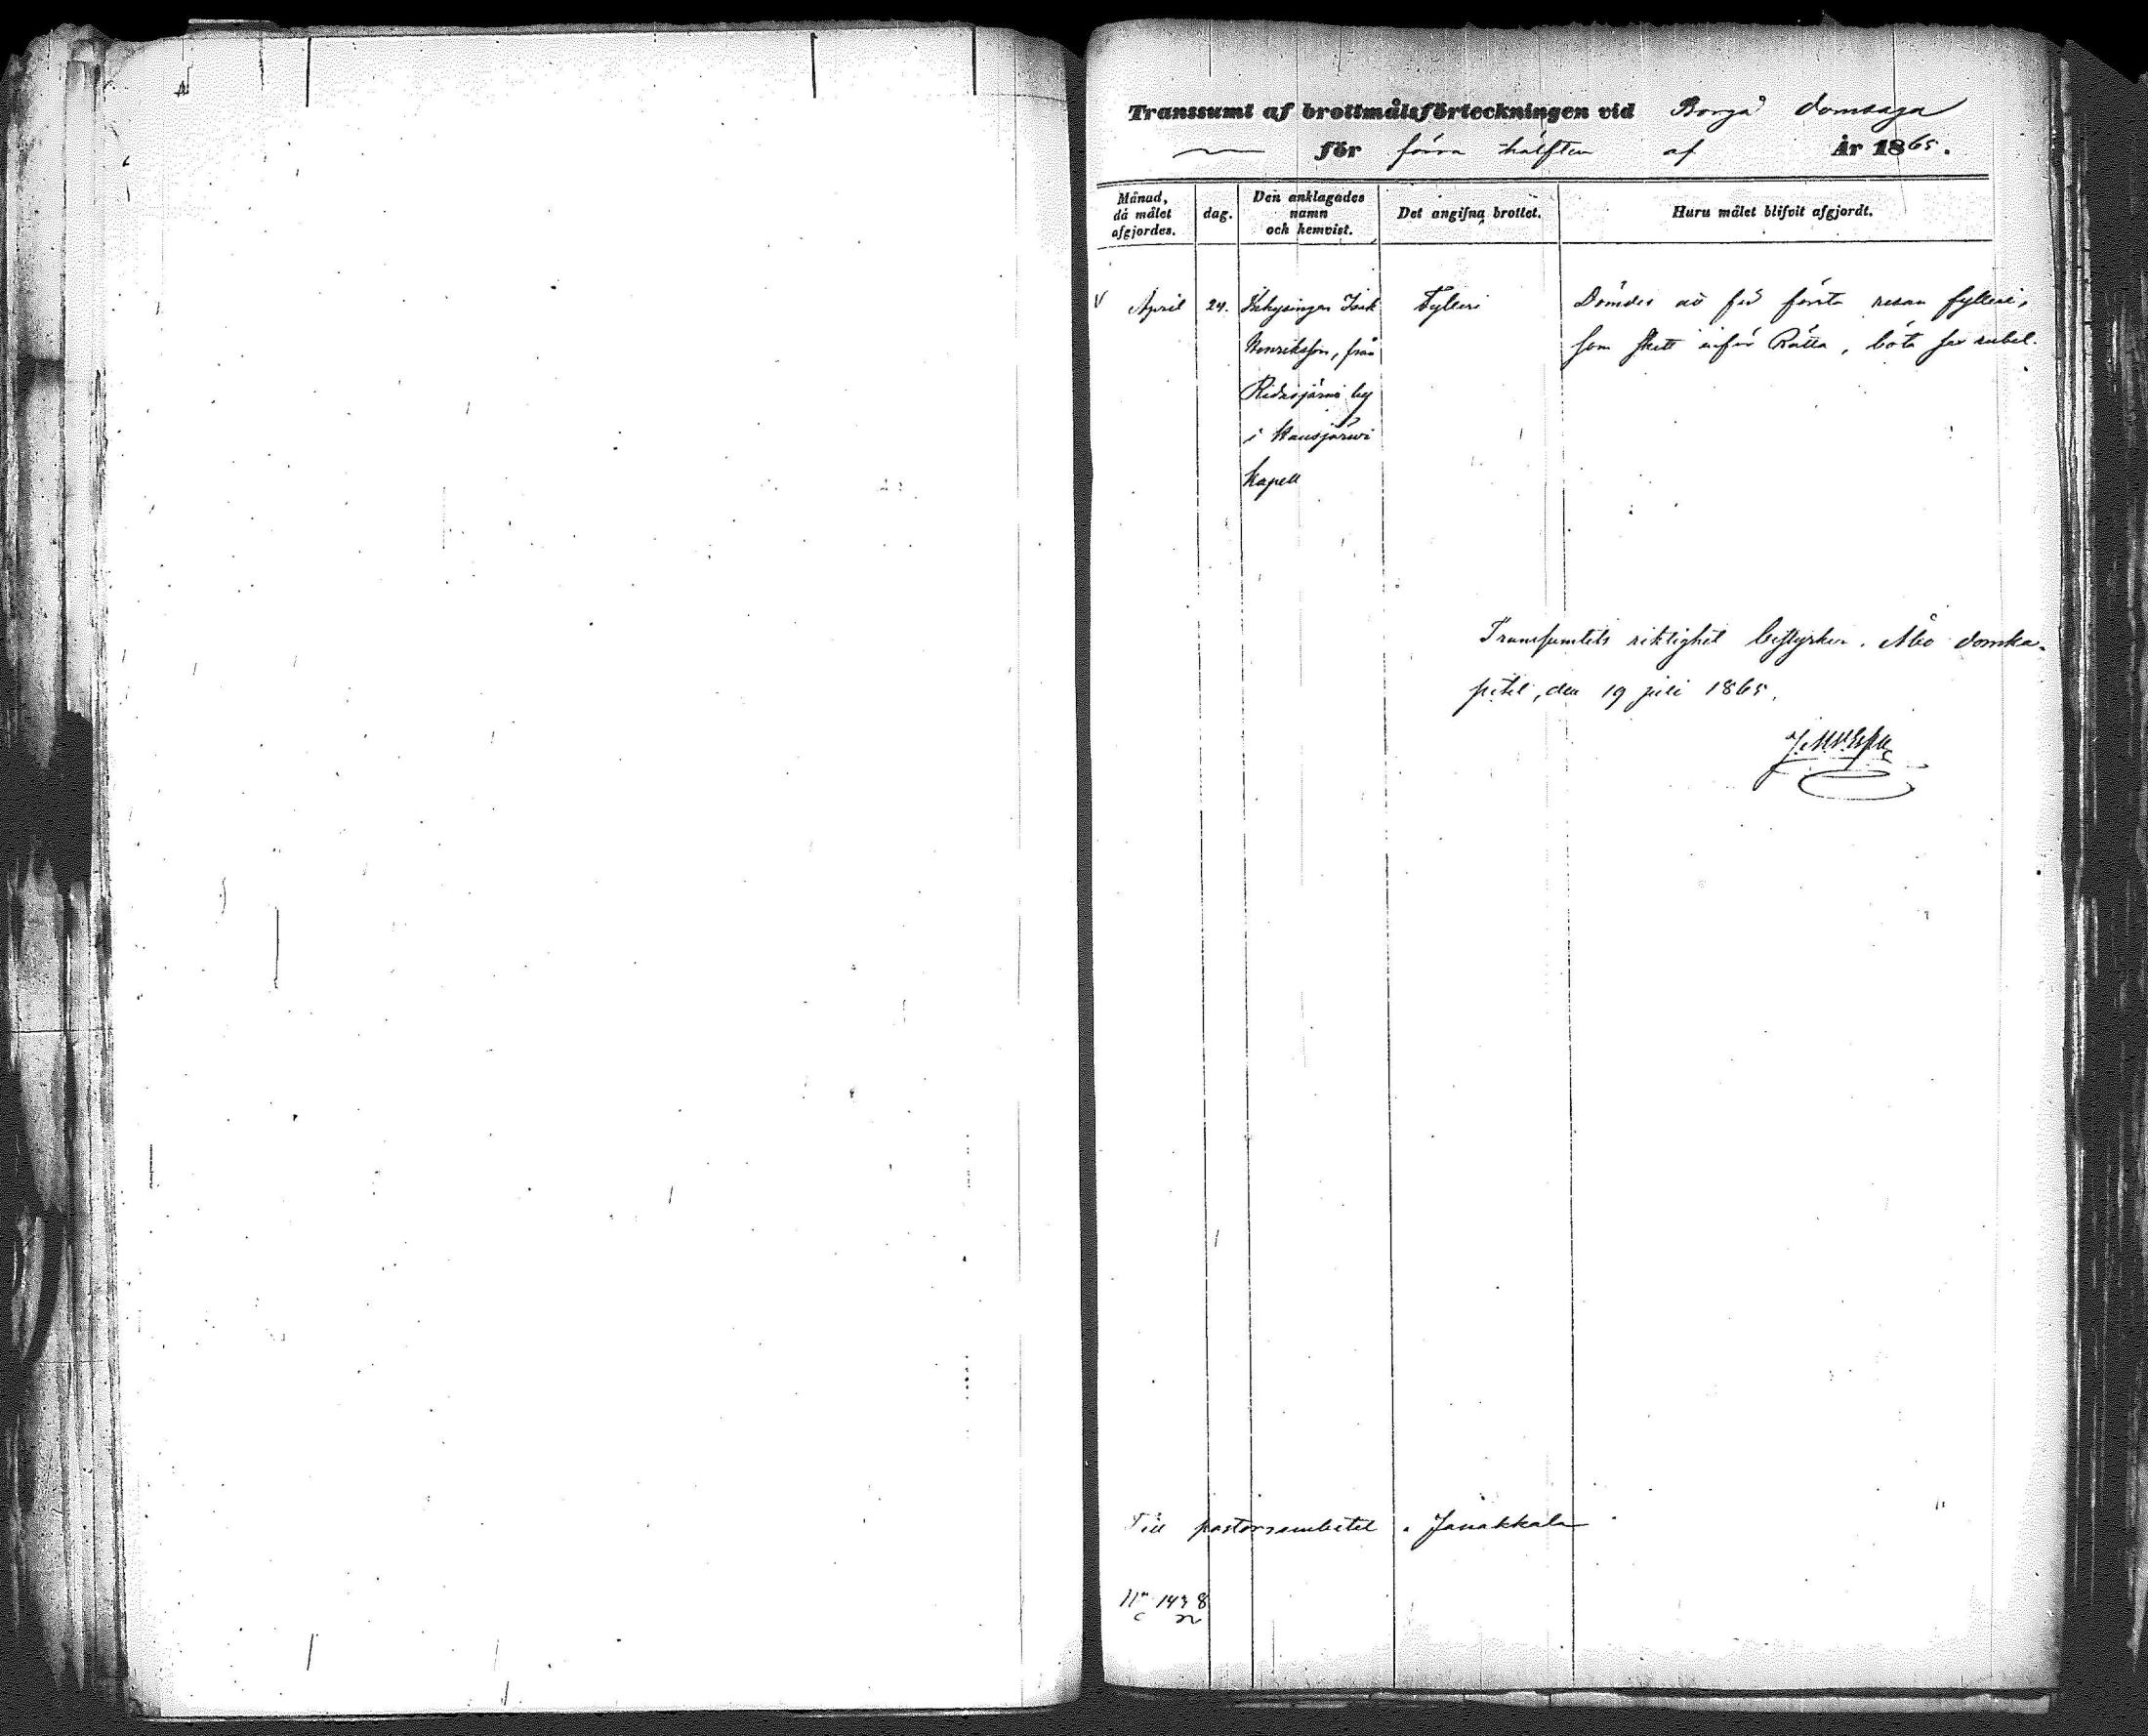 Transsumt af brottmålsförteckningen vid Borgå domsaga
för förra hälften af År 1865.
Månad, då målet afgjordes.
dag.
Den anklagades namn och hemvist.
Det angifna brottet.
Huru målet blifvit afgjordt.
April 24. Inhysingen Isak Fylleri Dömdes att för första resan fylleri,
Henriksson, från som skett inför Rätta, böta sex rubel.
Ridasjärvi by
i Hausjärwi
Kapell
Transsumtets riktighet bestyrker. Åbo domka-
pitel, den 19 juli 1865.
Till pastorsembetet i Janakkala
No 1438